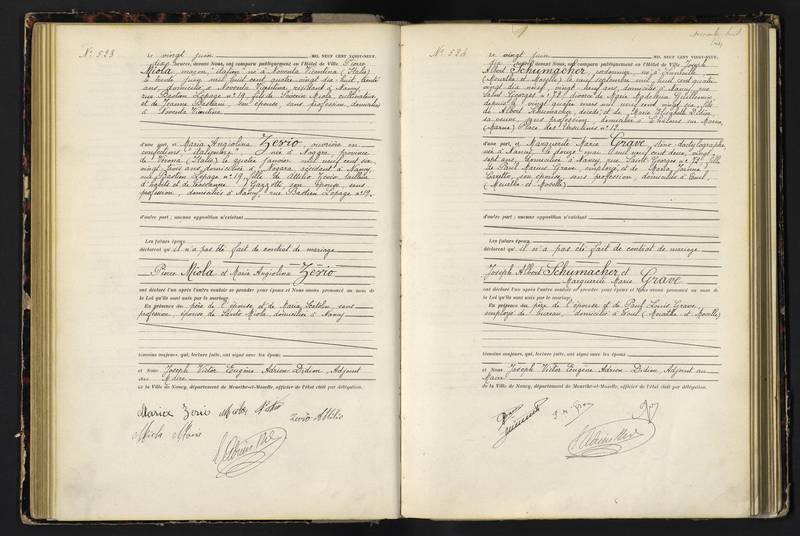 N° 523
Le vingt juin MIL NEUF CENT VINGT-NEUF,
dix heures, devant Nous, ont comparu publiquement en l'Hôtel de Ville Pierre
Miola, maçon, italien, né à Noventa Vicentina (Italie)
le trente juin mil huit cent quatre vingt dix huit, trente
ans, domicilié à Noventa Vicentina, résidant à Nancy,
rue Bastien Lepage n° 19, fils de Miola, cultivateur,
et de Jeanne Bastiani, son épouse, sans profession, domiciliés
à Noventa Vicentina
d'une part, et Maria Angiolina Zerio ouvrière en
confections, italienne, née à Nogara, province
de Vérone (Italie) le quatre janvier mil neuf cent six,
vingt trois ans, domiciliée à Nogara, résidant à Nancy,
rue Bastien Lepage n° 19, fille de Attilio Zerio, tailleur
d'habits et de Gazzotte son épouse, sans
profession, domiciliés à Nancy, rue Bastien Lepage n° 19.
d'autre part; aucune opposition n'existant
Les futurs époux
déclarent qu'il n'a pas été fait de contrat de mariage
Pierre Miola et Maria Angiolina Zerio
ont déclaré l'un après l'autre vouloir se prendre pour époux et Nous avons prononcé au nom de
la Loi qu'ils sont unis par le mariage.
En présence du père de l'épouse et de Maria, sans
profession, épouse de Miola, domiciliés à Nancy
témoins majeurs, qui, lecture faite, ont signé avec les époux
et Nous Joseph Victor Eugène Adrien Didion Adjoint
au Maire
de la Ville de Nancy, département de Meurthe-et-Moselle, officier de l'état civil par délégation.
Zerio Attilio
Miola Marie
N° 524
Le vingt juin MIL NEUF CENT VINGT-NEUF,
dix heures, devant Nous, ont comparu publiquement en l'Hôtel de Ville Joseph
Albert Schumacher, cordonnier, né à Lunéville
(Meurthe et Moselle) le neuf septembre mil huit cent quatre
vingt dix neuf, vingt neuf ans, domicilié à Nancy, rue
Saint Georges n° 73, divorcé de Marie Guillemin,
depuis le vingt quatre mars mil neuf cent vingt six, fils
de Albert Schumacher, décédé, et de Marie Elisabeth Didier,
sa veuve, sans profession, domiciliée à Châlons sur Marne,
(Marne) Place des n° 13
d'une part, et Marguerite Marie Grave, sténo dactylographe,
née à Nancy le douze mai mil neuf cent deux, vingt
sept ans, domiciliée à Nancy, rue Saint Georges n° 73, fille
de Paul Marius Grave, employé, et de Marie
son épouse, sans profession, domiciliés à Toul,
(Meurthe et Moselle)
d'autre part; aucune opposition n'existant
Les futurs époux
déclarent qu'il n'a pas été fait de contrat de mariage
Joseph Albert Schumacher et
Marguerite Marie Grave
ont déclaré l'un après l'autre vouloir se prendre pour époux et Nous avons prononcé au nom de
la Loi qu'ils sont unis par le mariage.
En présence du père de l'épouse et de Paul Louis Grave,
employé de bureau, domicilié à Toul (Meurthe et Moselle)
témoins majeurs, qui, lecture faite, ont signé avec les époux
et Nous Joseph Victor Eugène Adrien Didion Adjoint au
Maire
de la Ville de Nancy, département de Meurthe-et-Moselle, officier de l'état civil par délégation.